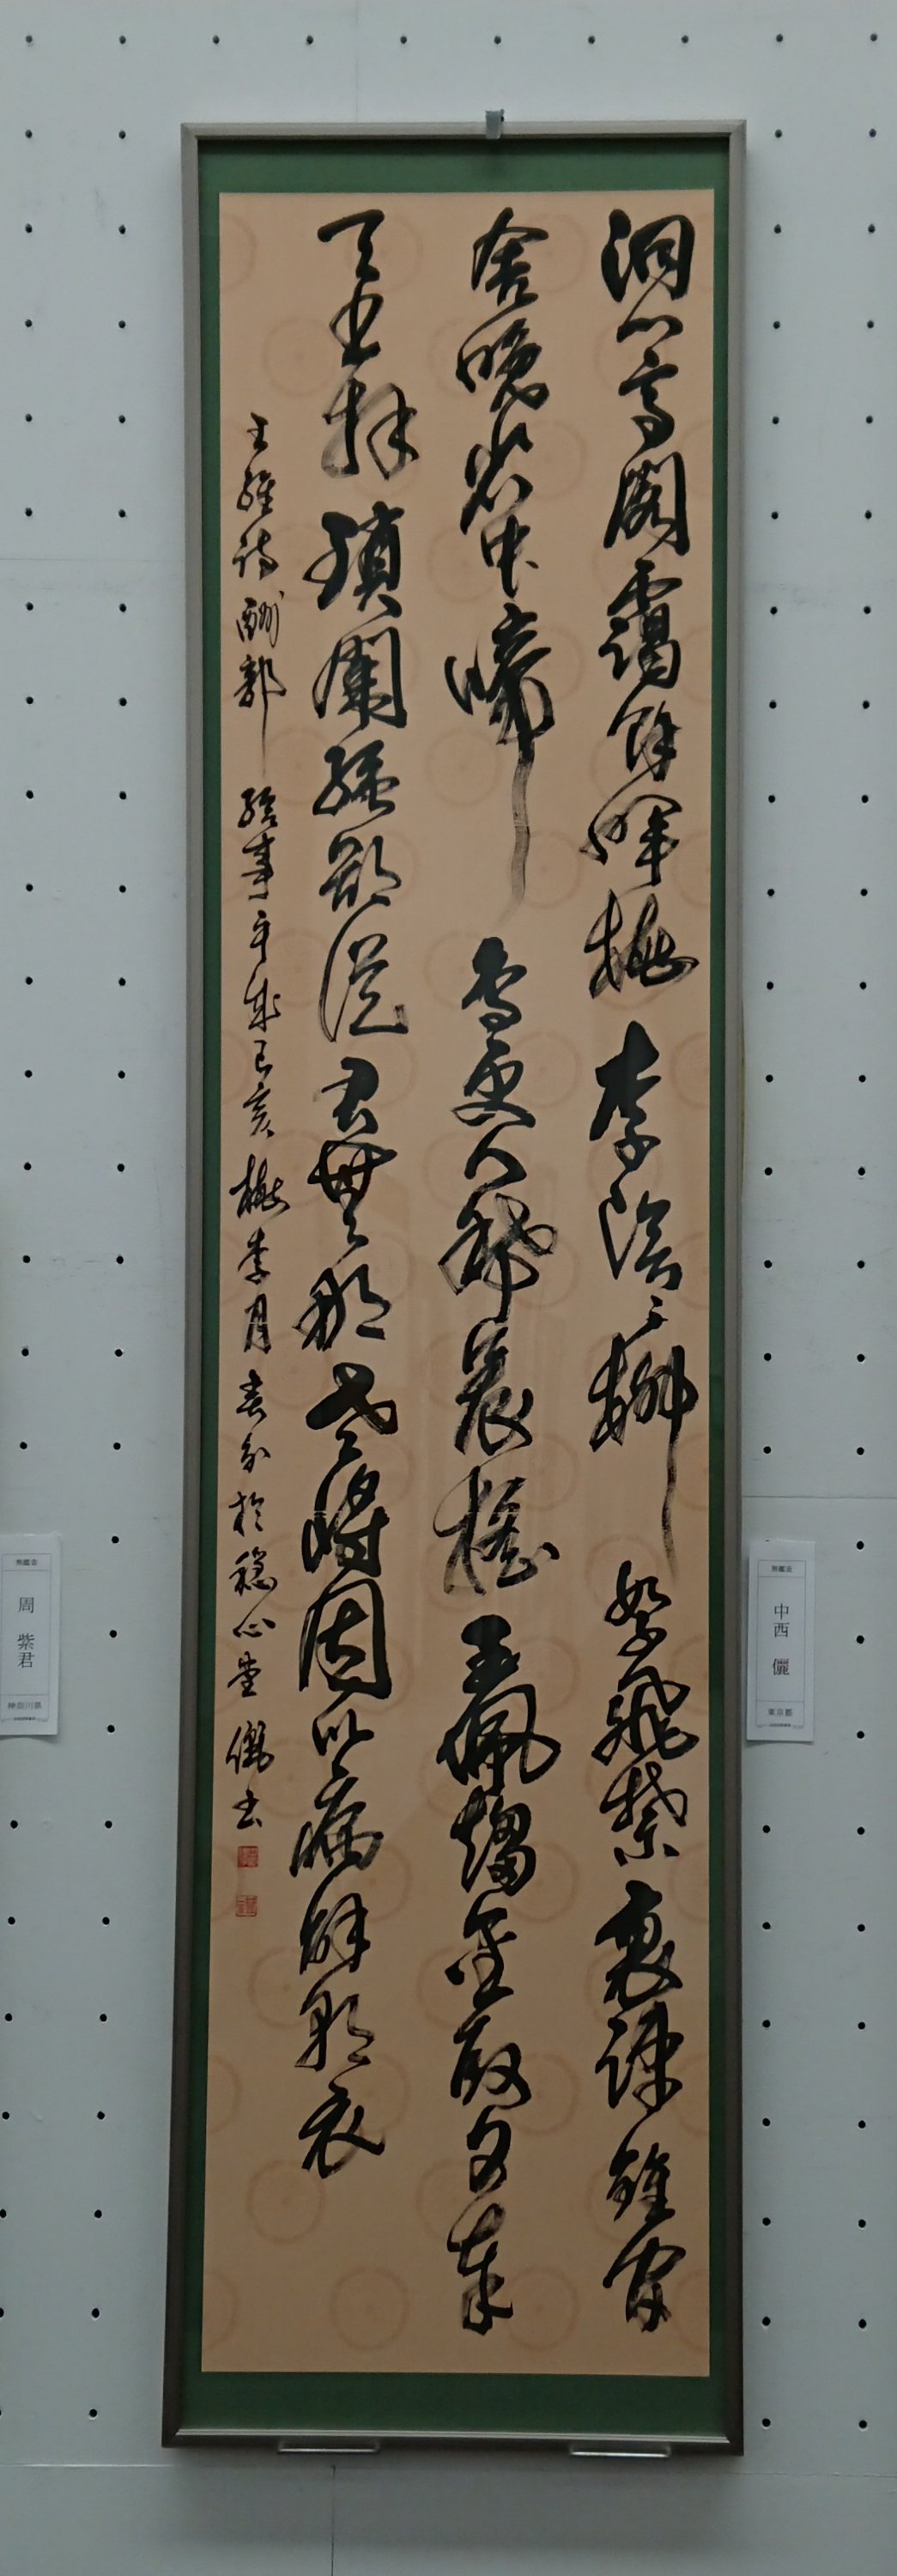 洞門高閣靄餘暉桃李陰〻柳絮飛禁裏疎鐘官
舍晚省中啼鳥吏人稀晨搖玉珮趨金殿夕奉
天書拜瑣闈強欲從君無那老將因臥病解朝衣
王維詩酬郭給事平成己亥桃李月春分於穏心堂儷書
無鑑査
中西 儷
東京都
無鑑査
周 紫君
神奈川県